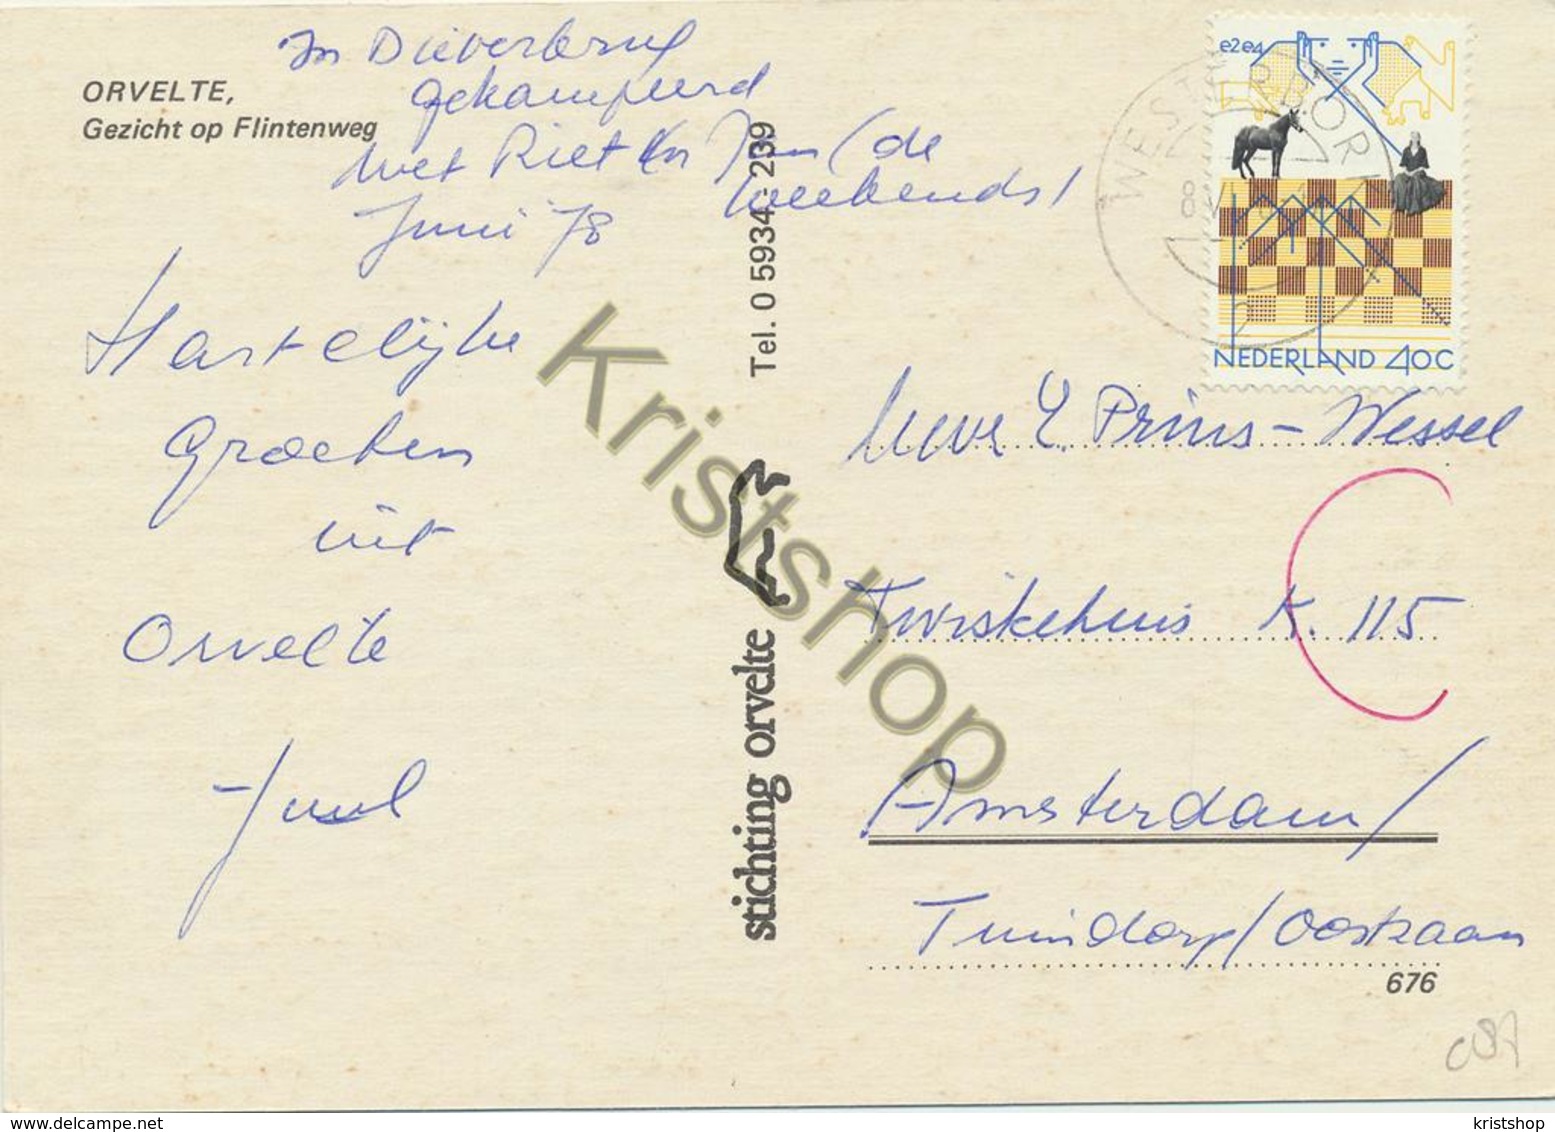 In Dieverbrug
gekampeerd
met Riet en Jan (de
weekends)
Juni '78
ORVELTE,
Gezicht op Flintenweg
Hartelijke
Groeten
uit
Orvelte
Tel. 0 5934 - 239
stichting orvelte
Kristshop
WESTERBORK
e2e4
NEDERLAND 40C
Mevr E Prins - Wessel
Twiskehuis K. 115
Amsterdam/
Tuindorp/Oostzaan
676
www.delcampe.net
kristshop